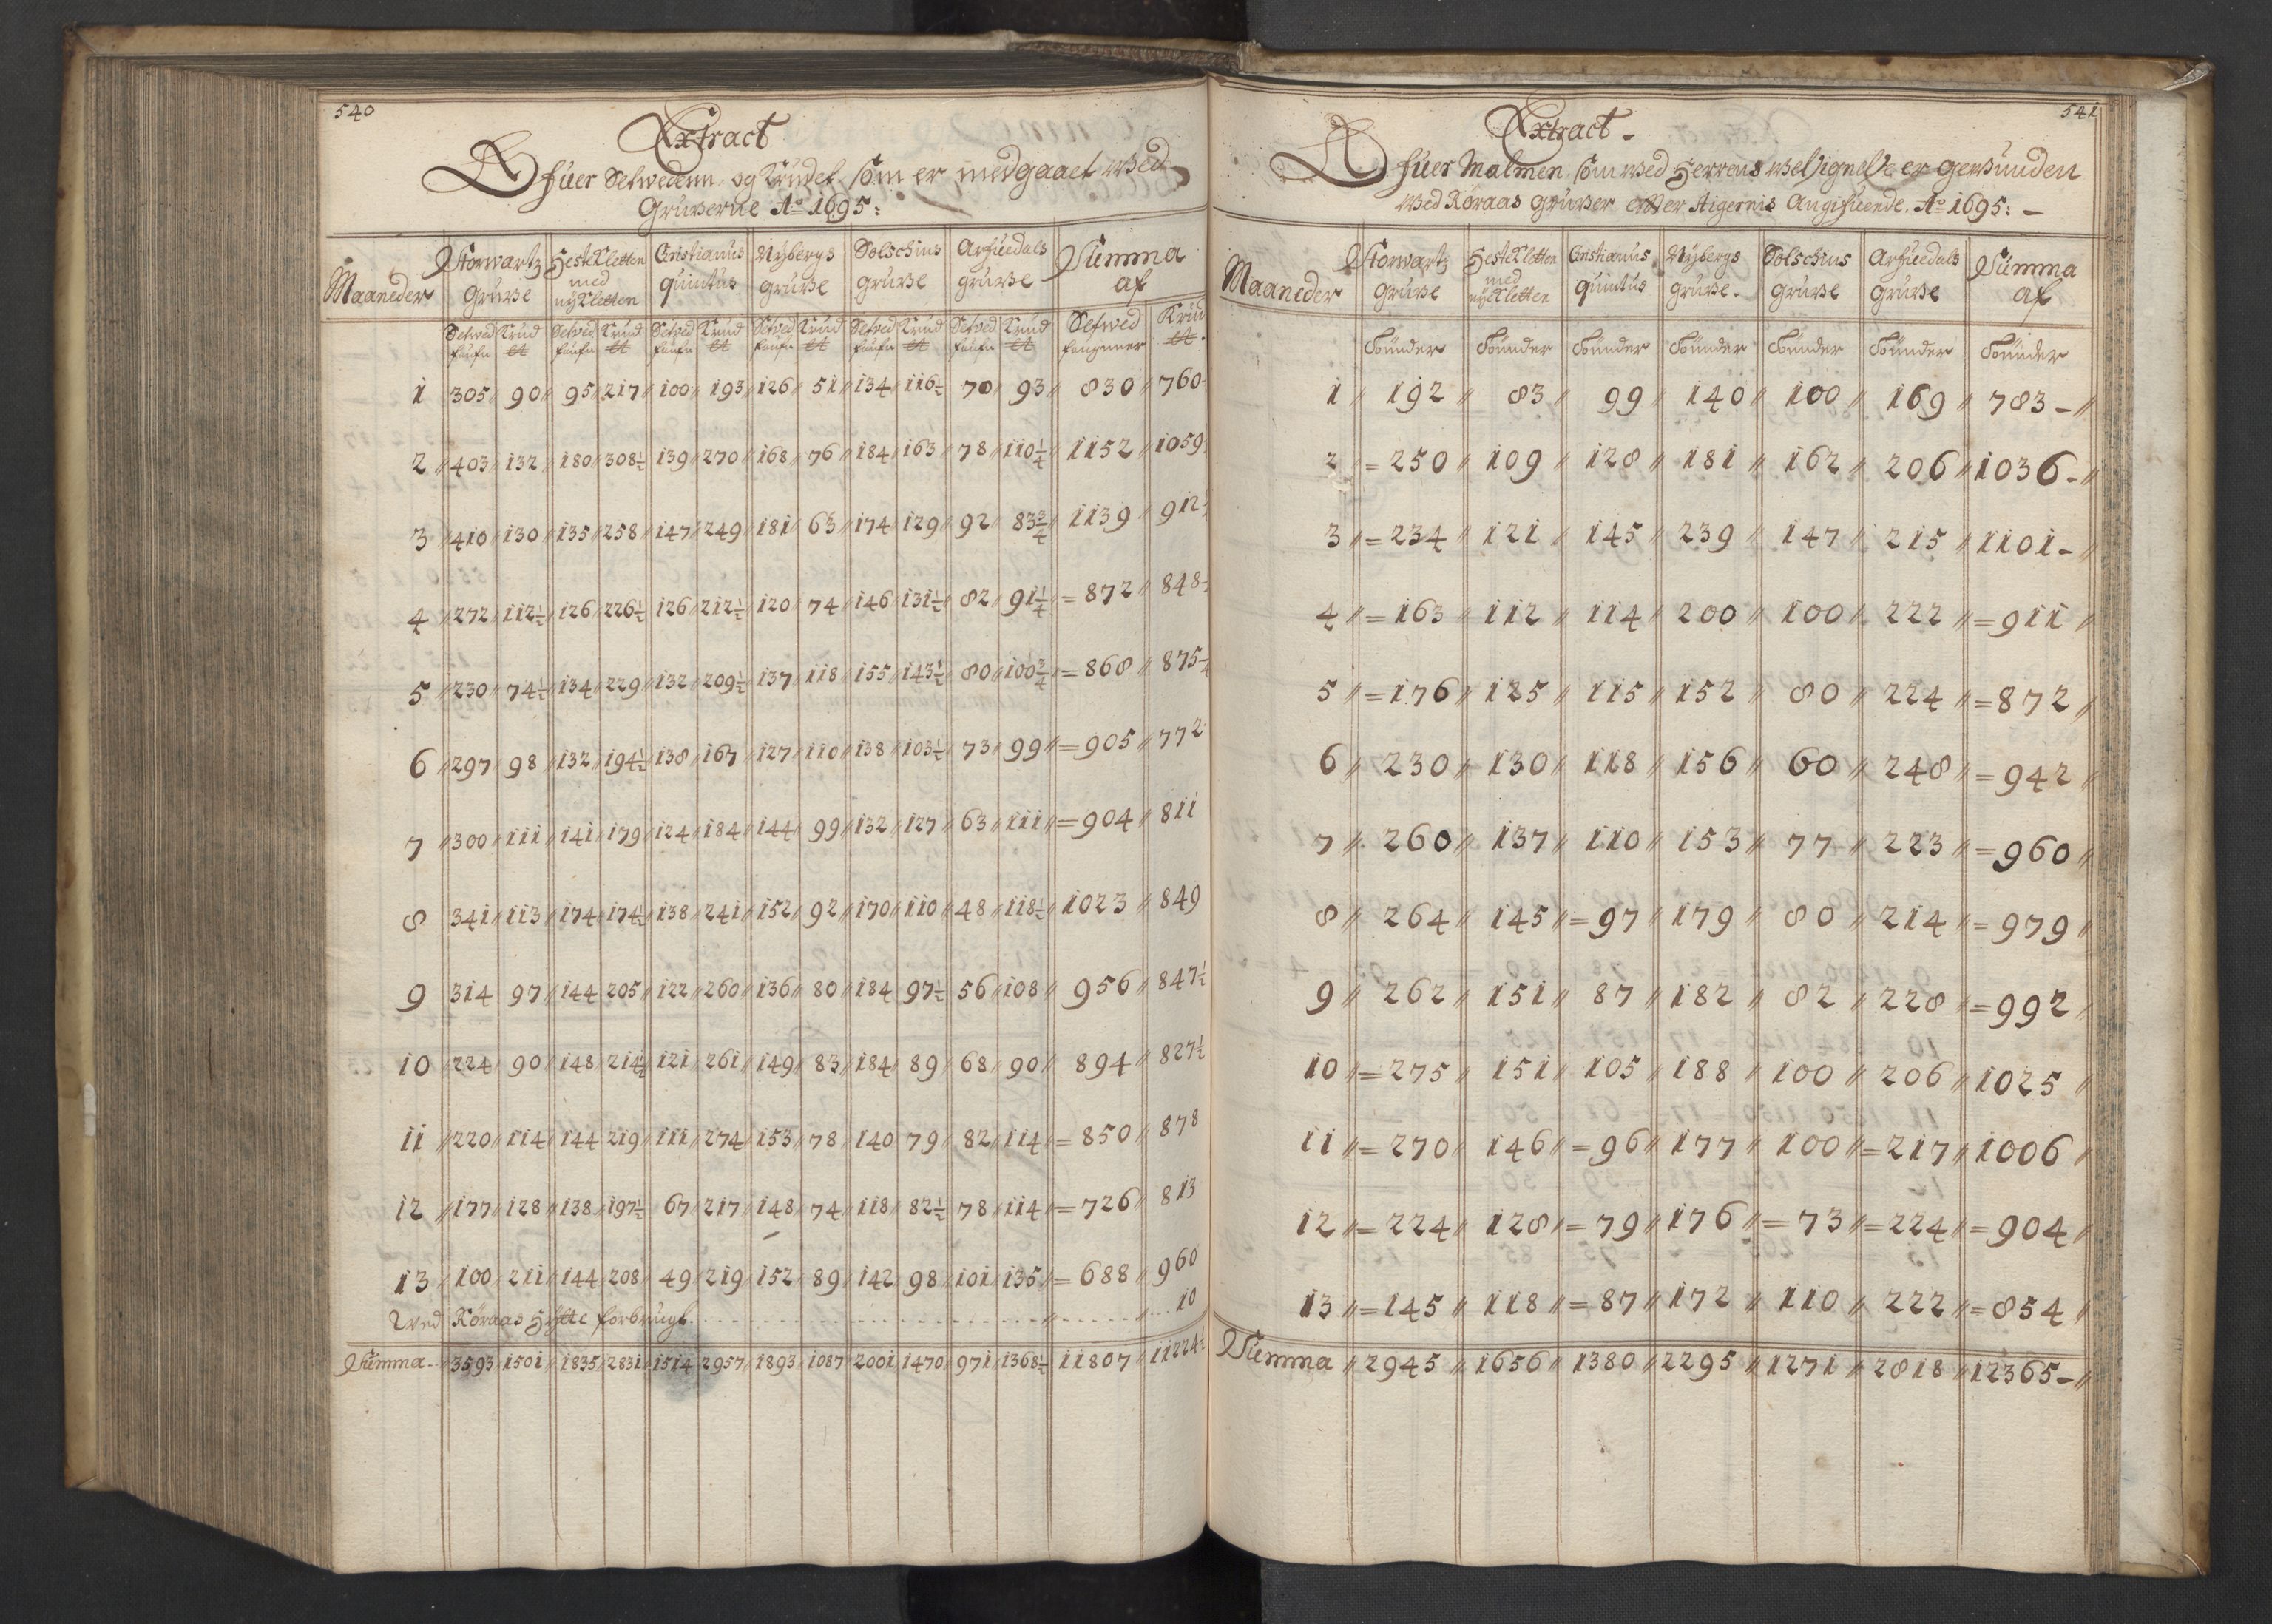 540
Extract
Ofuer Setweden og Krudet som er medgaaet wed
Gruberne Ao 1695:
Maaneder Storwartz Grube HesteKletten med nyKletten Cristianus quintus Nybergs grube Solschins grube Arfuedals grube Summa af
Setwed faufn Krud lt Setved faufn Krud lt Setved faufn Krud lt Setved faufn Krud lt Setved faufn Krud lt Setved faufn Krud lt Setwed faugnner Krud lt
1 305 90 95 217 100 193 126 51 134 116½ 70 93 830 760
2 403 132 180 308½ 139 270 168 76 184 163 78 110¼ 1152 1059
3 410 130 135 258 147 249 181 63 174 129 92 83¾ 1139 912
4 272 112½ 126 226½ 126 212½ 120 74 146 131½ 82 91¼ = 872 848
5 230 74½ 134 229 132 209½ 137 118 155 143½ 80 100¾ = 868 875
6 297 98 132 194½ 138 167 127 110 138 103½ 73 99 = 905 772
7 300 111 141 179 124 184 144 99 132 127 63 111 = 904 811
8 341 113 174 174½ 138 241 152 92 170 110 48 118½ 1023 849
9 314 97 144 205 122 260 136 80 184 97½ 56 108 956 847½
10 224 90 148 214½ 121 261 149 83 184 89 68 90 894 827½
11 220 114 144 219 111 274 153 78 140 79 82 114 = 850 878
12 177 128 138 197½ 67 217 148 74 118 82½ 78 114 = 726 813
13 100 211 144 208 49 219 152 89 142 98 101 135 = 688 960
Wed Röraas Hytte forbrugt 10
Summa 3593 1501 1835 2831 1514 2957 1893 1087 2001 1470 971 1368½ 11807 11224½
541
Extract
Ofuer Malmen, som wed Herrens welsignelse er gewunden
wed Röraas gruber efter Stigernis Angifuende. Ao 1695:
Maaneder Storwartz grube HesteKletten med nyeKletten Cristianus quintus Nybergs grube. Solschius grube Arfuedals grube Summa af
Tönder Tönder Tönder Tönder Tönder Tönder Tönder
1 192 83 99 140 100 169 783
2 = 250 109 128 181 162 206 1036
3 = 234 121 145 239 147 215 1101
4 = 163 112 114 200 100 222 = 911
5 = 176 125 115 152 80 224 = 872
6 230 130 118 156 60 248 = 942
7 260 137 110 153 77 223 = 960
8 264 145 = 97 179 80 214 = 979
9 262 151 87 182 82 228 = 992
10 = 275 151 105 188 100 206 1025
11 = 270 146 = 96 177 100 = 217 1006
12 = 224 128 = 79 176 = 73 = 224 = 904
13 = 145 118 = 87 172 110 222 = 854
Summa 2945 1656 1380 2295 1271 2818 12365